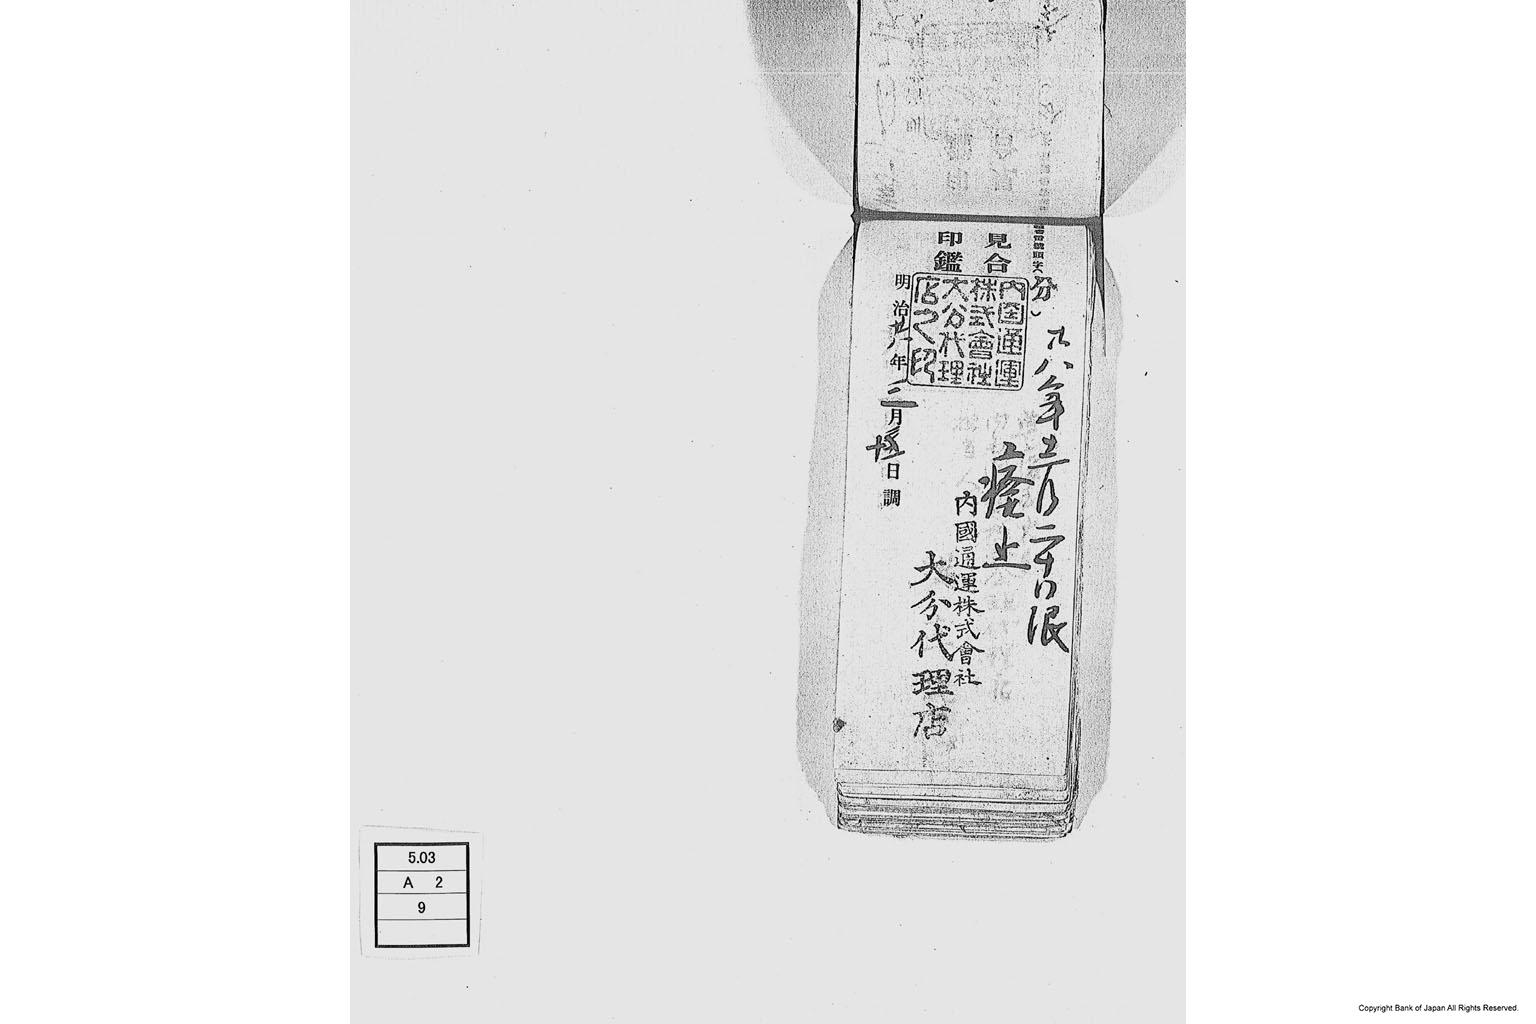 分)
廿八年十二月二十日限
廃止
見合
印鑑
内国通運
株式會社
大分代理
店之印
内國通運株式會社
大分代理店
明治廿八年二月十五日調
5.03
A 2
9
Copyright Bank of Japan All Rights Reserved.